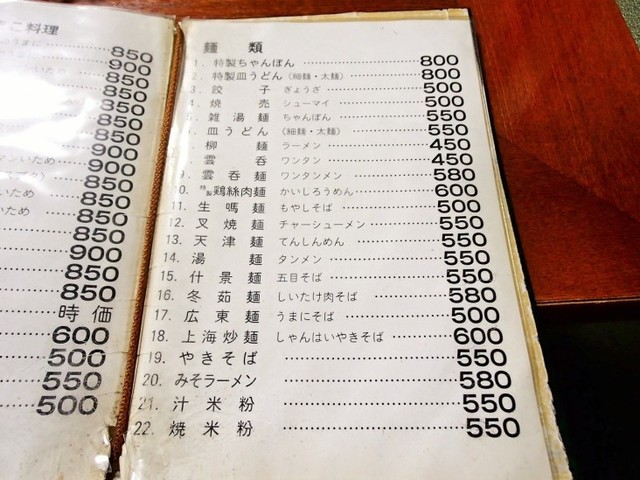 料理
850
900
850
850
850
900
900
850
850
850
900
850
850
時価
600
500
550
500
麺 類
1. 特製ちゃんぽん 800
2. 特製皿うどん (細麺・太麺) 800
3. 餃子 ぎょうざ 500
4. 焼売 シューマイ 500
5. 雑湯麺 ちゃんぽん 550
6. 皿うどん (細麺・太麺) 550
柳麺 ラーメン 450
雲呑 ワンタン 450
9. 雲呑麺 ワンタンメン 580
10. 特製鶏絲肉麺 かいしろうめん 600
11. 生嗎麺 もやしそば 500
12. 叉焼麺 チャーシューメン 550
13. 天津麺 てんしんめん 550
14. 湯麺 タンメン 550
15. 什景麺 五目そば 550
16. 冬茹麺 しいたけ肉そば 580
17. 広東麺 うまにそば 500
18. 上海炒麺 しゃんはいやきそば 600
19. やきそば 550
20. みそラーメン 580
21. 汁米粉 550
22. 焼米粉 550